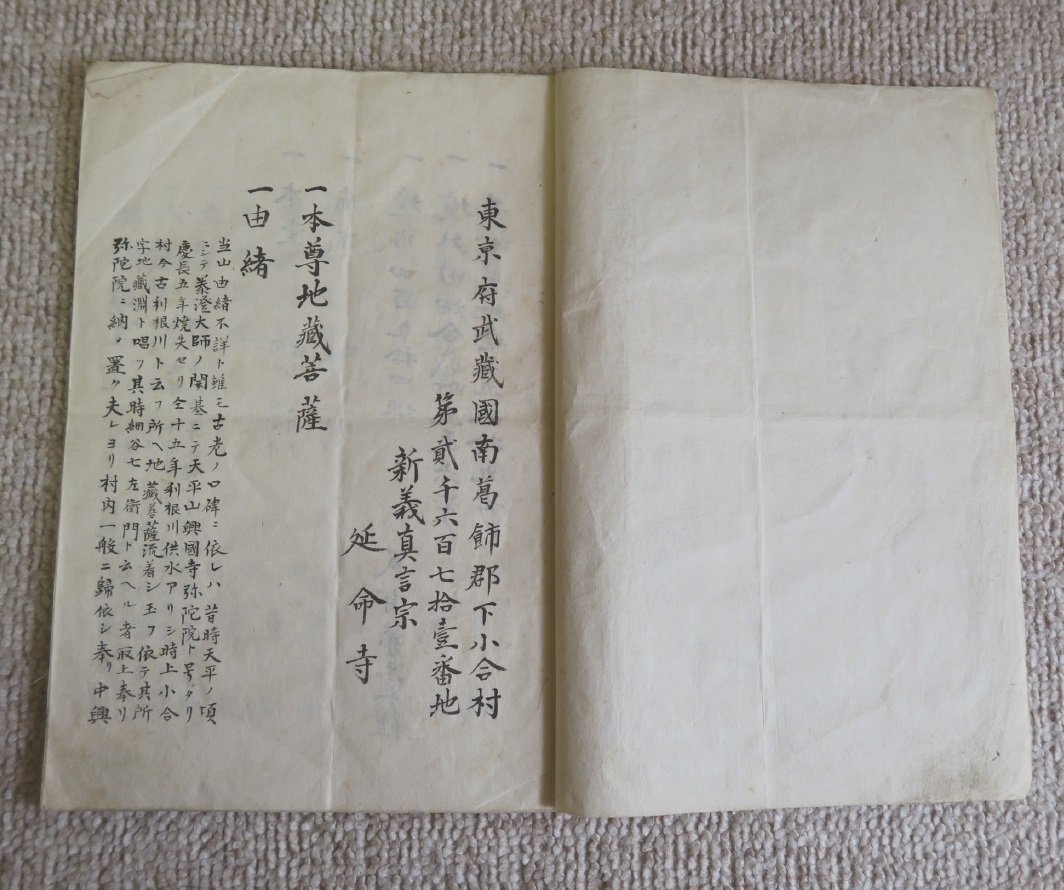 東京府武藏國南葛飾郡下小合村
第貳千六百七拾壹番地
新義真言宗
延命寺
一本尊地藏菩薩
一由緒
当山由緒不詳ト雖モ古老ノ口碑ニ依レハ昔時天平ノ頃
ニシテ泰澄大師ノ開基ニテ天平山興國寺弥陀院ト号タリ
慶長五年焼失セリ仝十五年利根川供水アリシ時上小合
村今古利根川ト云フ所ヘ地藏菩薩流着シ玉フ依テ其所
字地藏淵ト唱フ其時細谷七左衛門ト云ヘル者取上奉リ
弥陀院ニ納メ置ク夫レヨリ村内一般ニ歸依シ奉リ中興